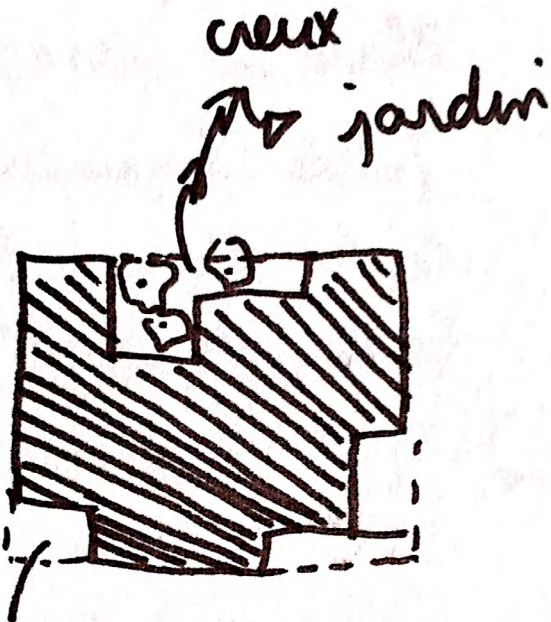 creux
jardin